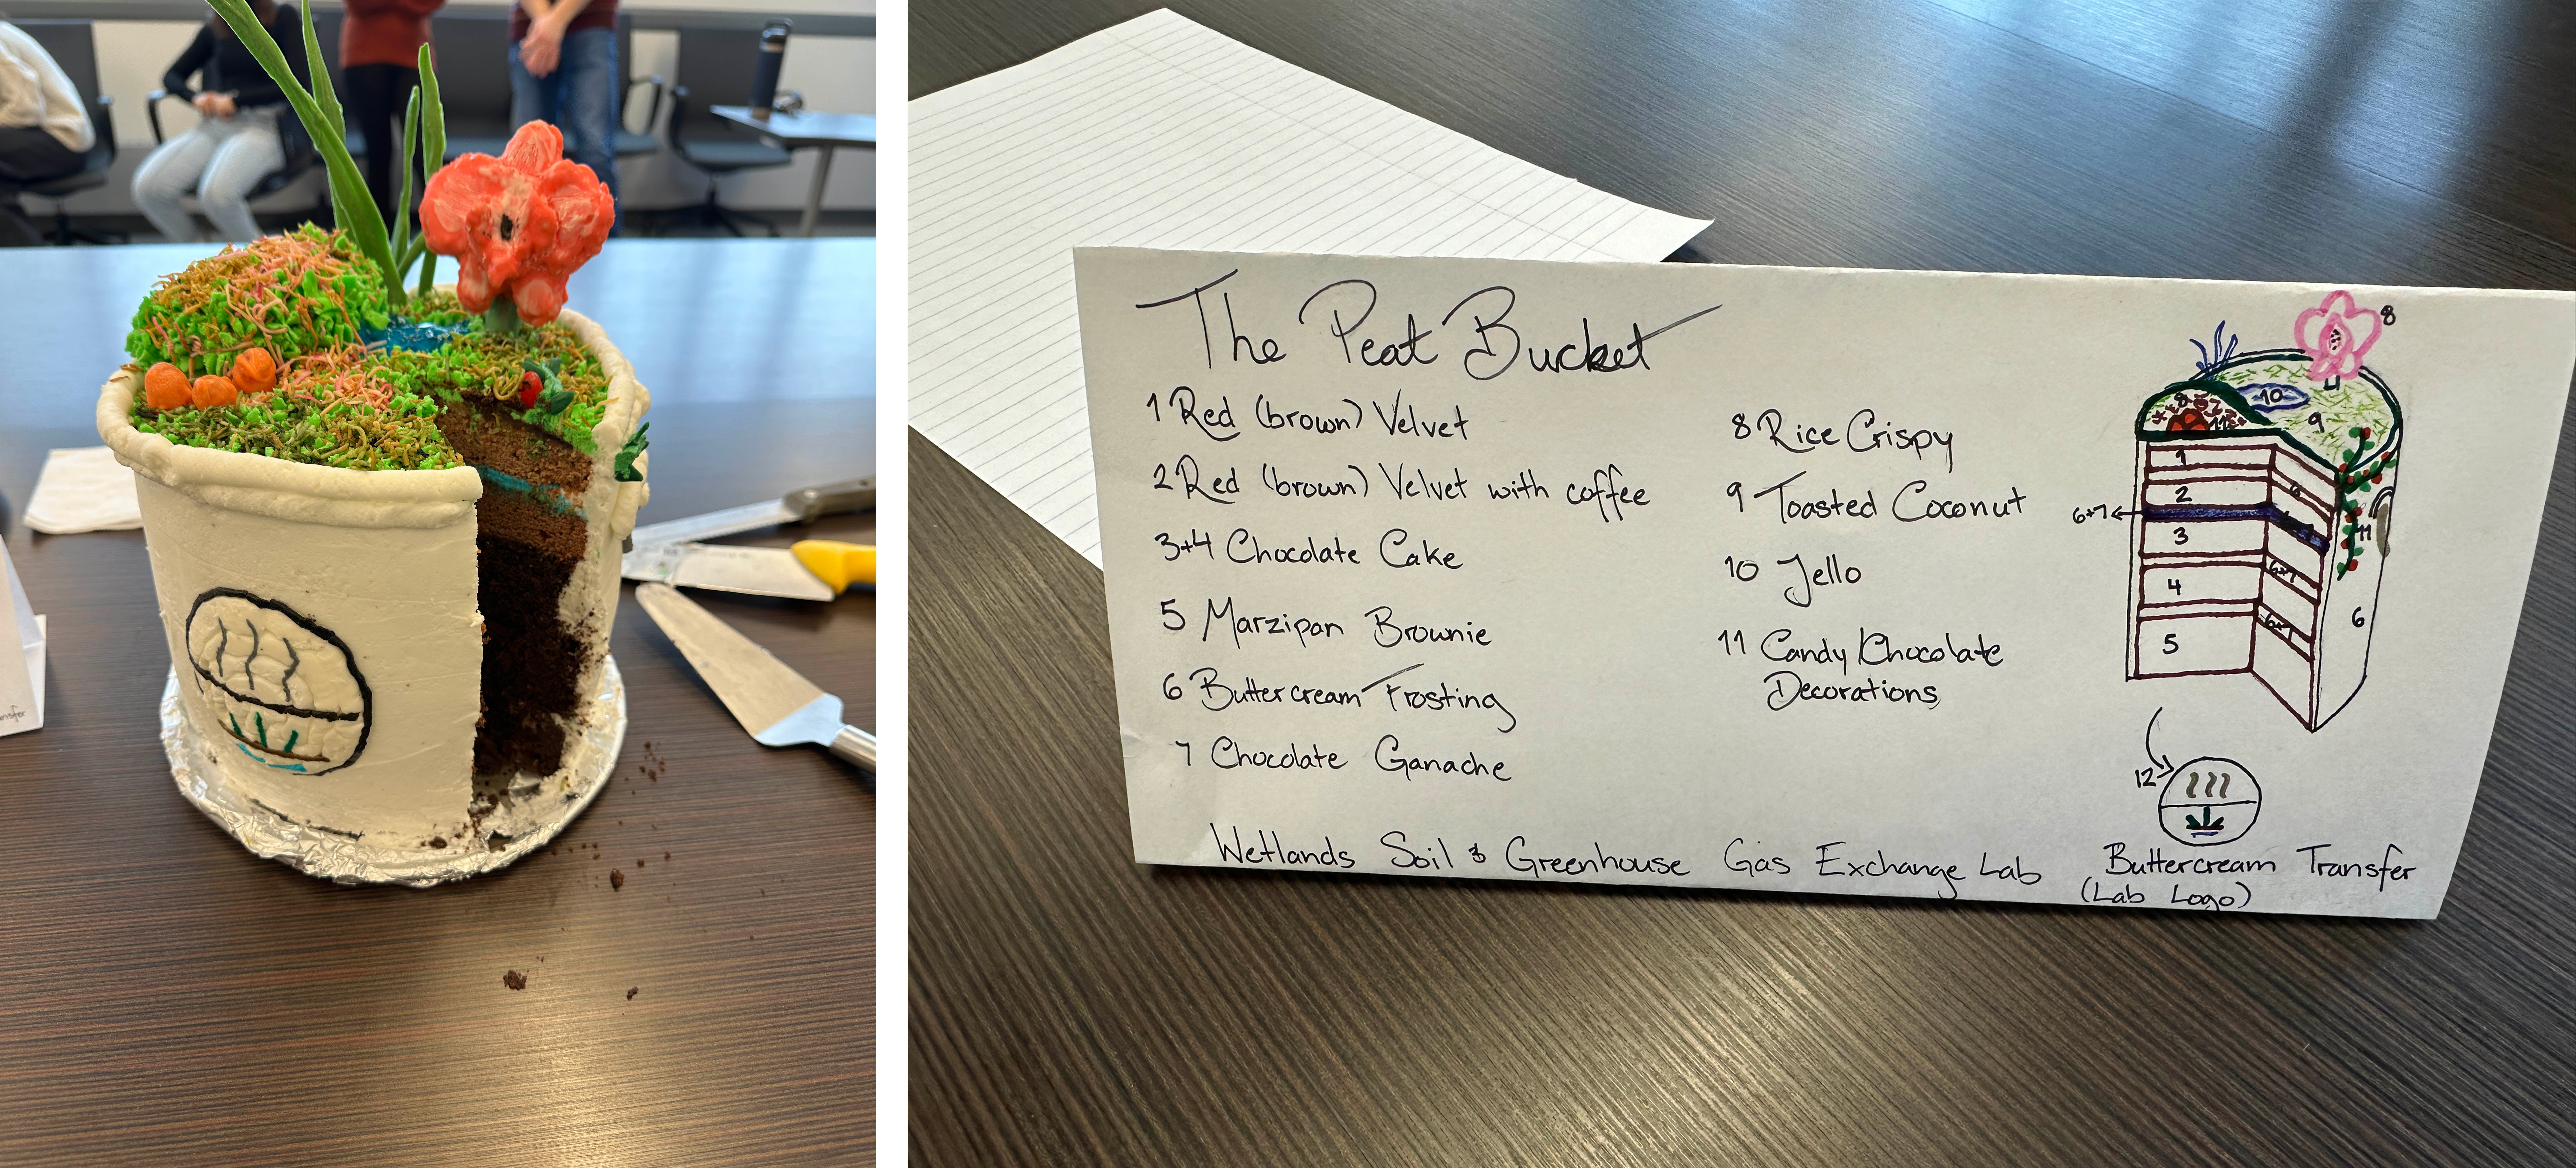 nsfer
The Peat Bucket
1 Red (brown) Velvet
2 Red (brown) Velvet with coffee
3+4 Chocolate Cake
5 Marzipan Brownie
6 Buttercream Frosting
7 Chocolate Ganache
8 Rice Crispy
9 Toasted Coconut
10 Jello
11 Candy/Chocolate
Decorations
8
10
9
1
2
6+7
3
4
6+7
6+7
5
6
11
12
Wetlands Soil & Greenhouse Gas Exchange Lab
Buttercream Transfer
(Lab Logo)